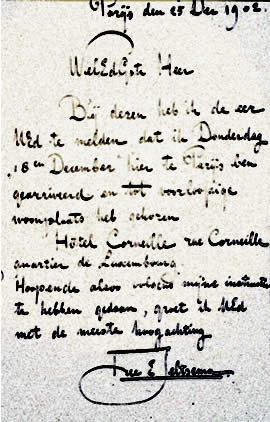 Parijs den 25 Dec 1902.
WelEdGstr Heer
Bij dezen heb ik de eer
UEd te melden dat ik Donderdag
18en December hier te Parijs ben
gearriveerd en tot voorloopige
woonplaats heb gekozen
Hôtel Corneille rue Corneille
quartier de Luxembourg.
Hopende alsoo volgens mijne instructie
te hebben gedaan, groet ik UEd
met de meeste hoogachting